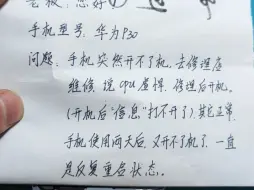 老板,您好
手机型号:华为P30
问题:手机突然开不了机,去修理店
维修,说CPU虚焊,修理后开机.
(开机后"信息"打不开了)其它正常.
手机使用两天后,又开不了机了,一直
是反复重启状态.